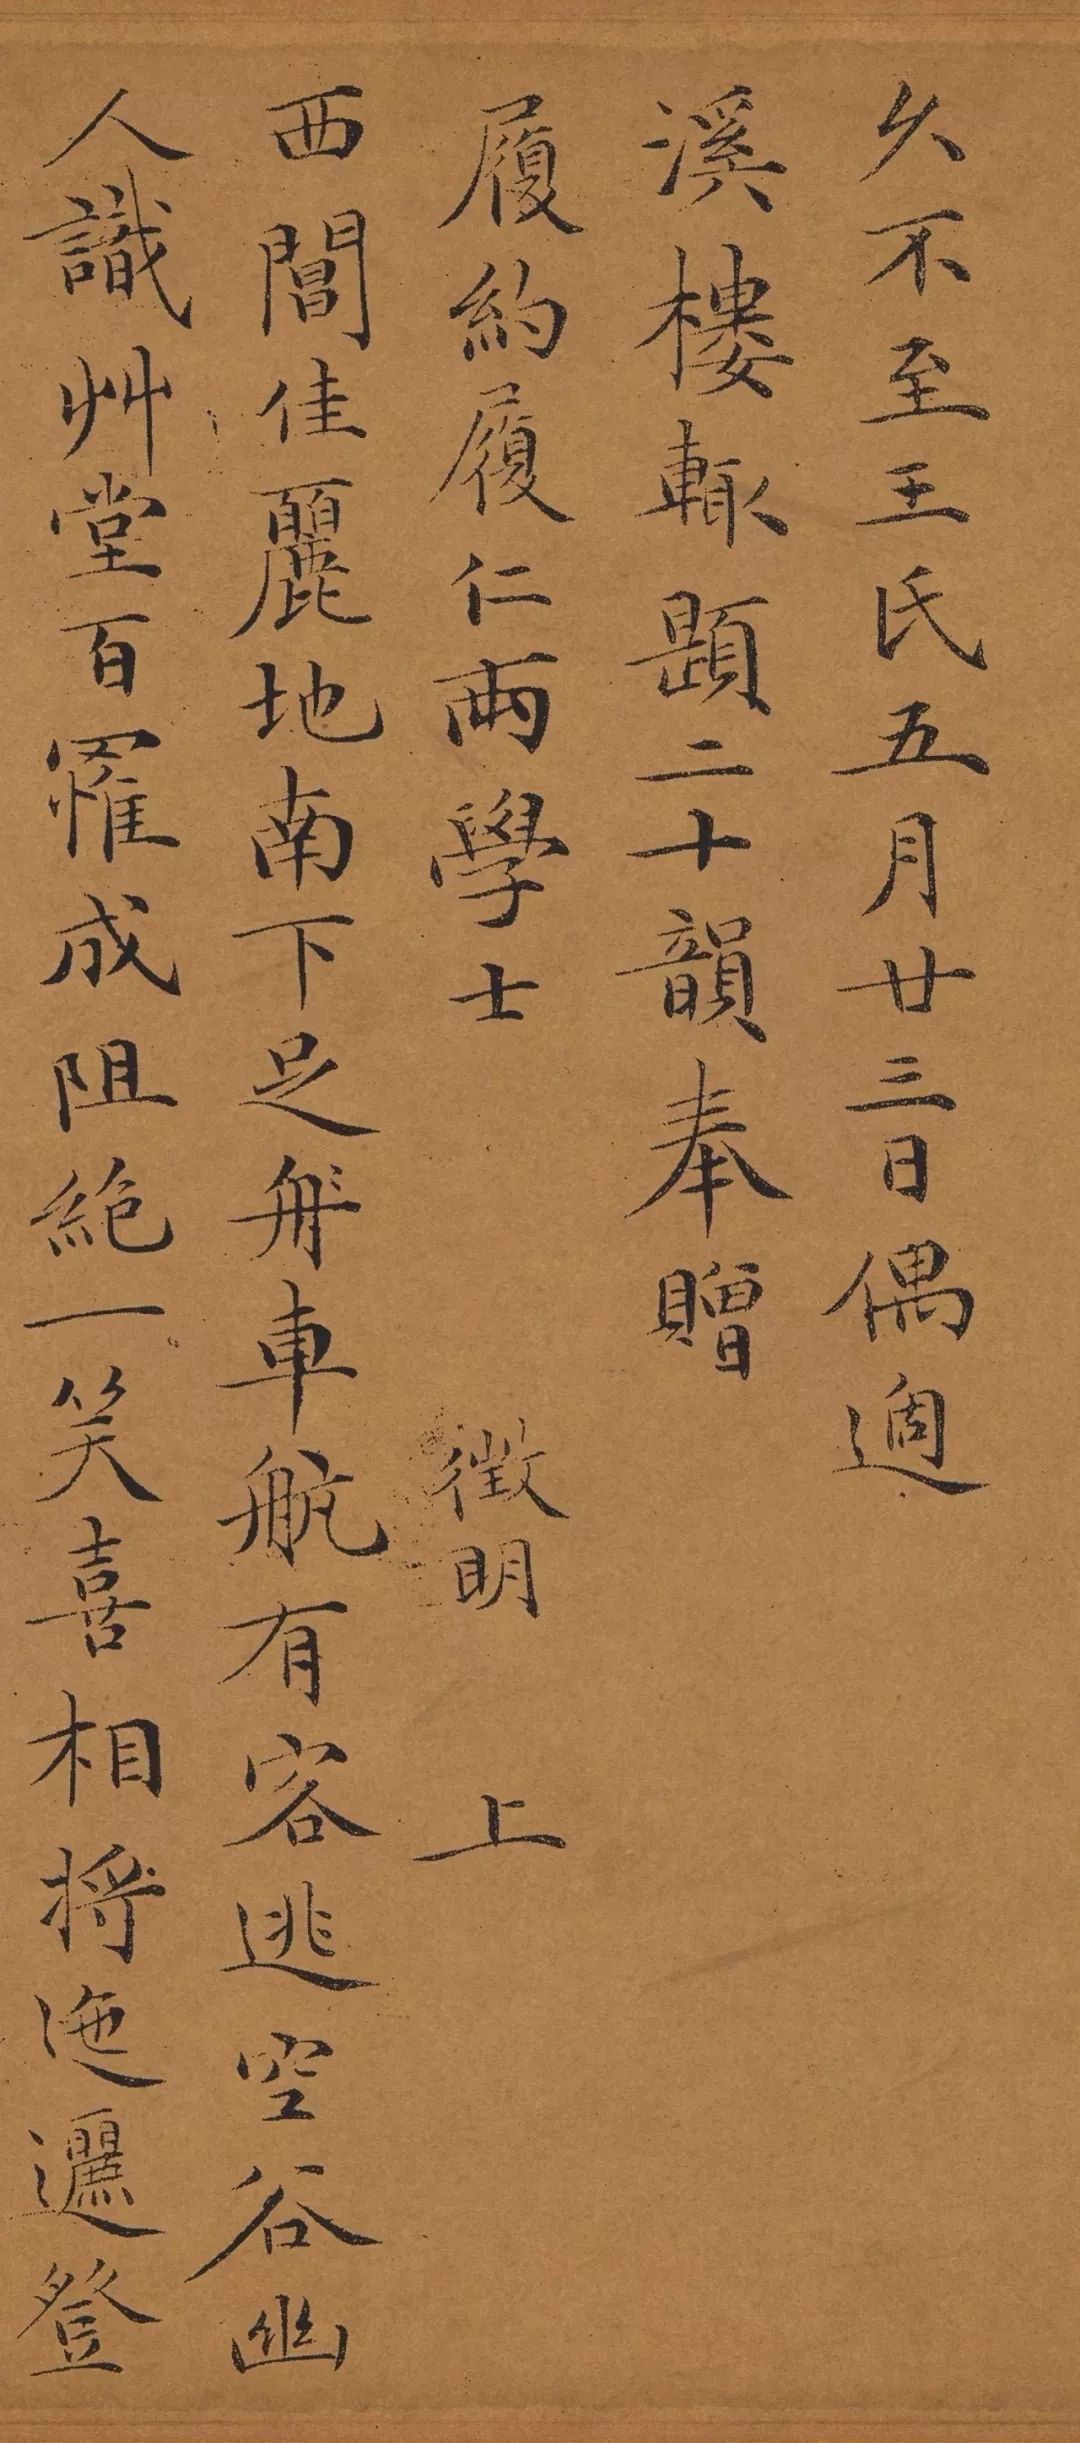 久不至王氏五月廿三日偶過
溪樓輙題二十韻奉贈
履約履仁兩學士 徵明 上
西閶佳麗地南下足舟車航有客逃空谷幽
人識艸堂百罹成阻絶一笑喜相將迤邐登